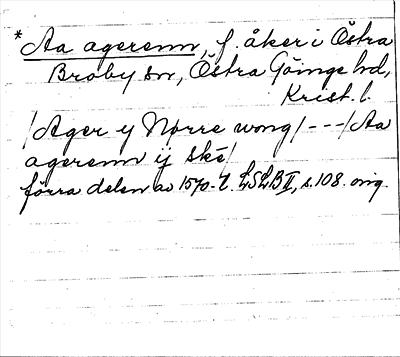 * Aa agerenn, f. åker i Östra
Broby sn, Östra Göinge hd,
Krist. l.
/Ager y Nørre wong/ - - - /Aa
agerenn ij Ske/
förra delen av 1570-t. LSLB II, s. 108. orig.